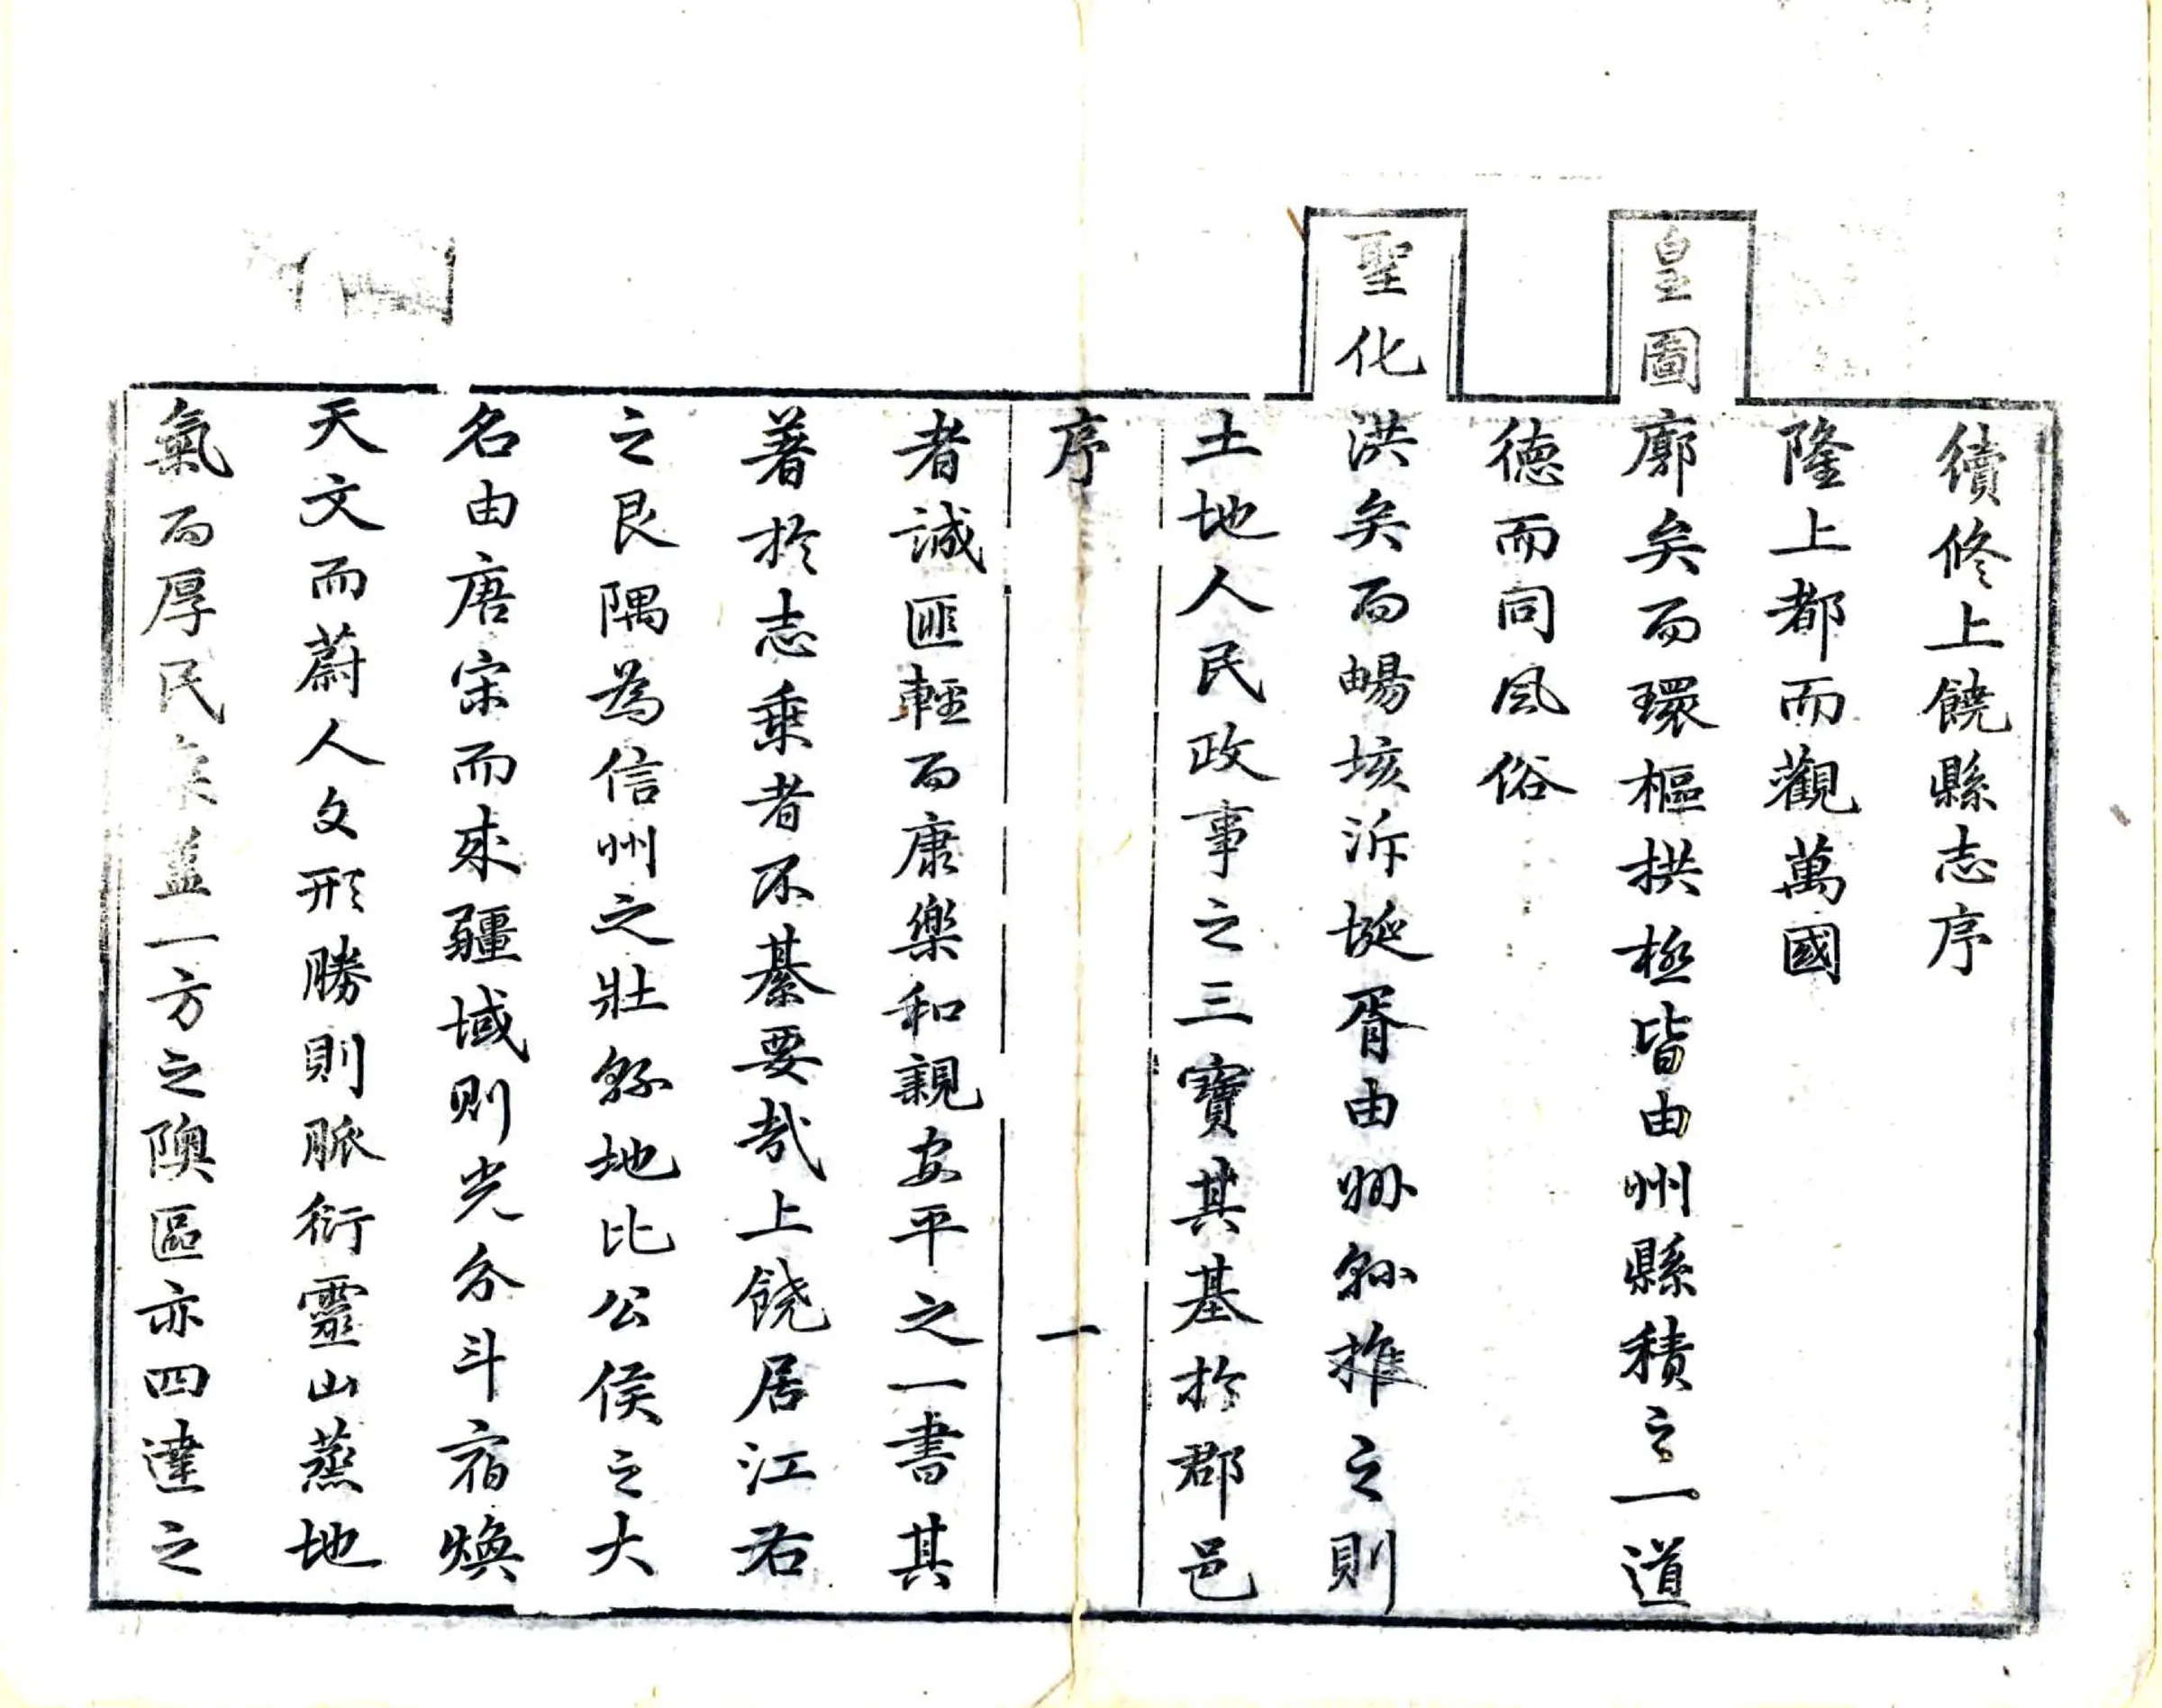 續修上饒縣志序
隆上都而觀萬國
皇圖廓矣而環樞拱極皆由州縣積之一道
德而同風俗
聖化洪矣而暢垓泝埏胥由州縣推之則
土地人民政事之三寶其基於郡邑
序 一
者誠匪輕而康樂和親安平之一書其
著於志乗者不綦要哉上饒居江右
之艮隅為信州之壯縣地比公侯之大
名由唐宋而來疆域則光分斗宿煥
天文而蔚人文形勝則脈衍靈山蒸地
氣而厚民 盖一方之隩區亦四達之